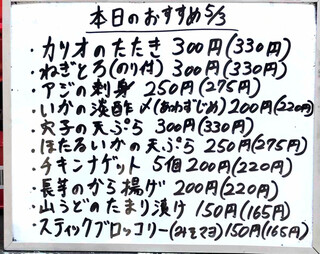 本日のおすすめ5/3
・カツオのたたき 300円(330円)
・ねぎとろ(のり付) 300円(330円)
・アジの刺身 250円(275円)
・いかの淡酢〆(あわずじめ) 200円(220円)
・穴子の天ぷら 300円(330円)
・ほたるいかの天ぷら 250円(275円)
・チキンナゲット 5個 200円(220円)
・長芋のから揚げ 200円(220円)
・山うどのたまり漬け 150円(165円)
・スティックブロッコリー(みそマヨ)150円(165円)